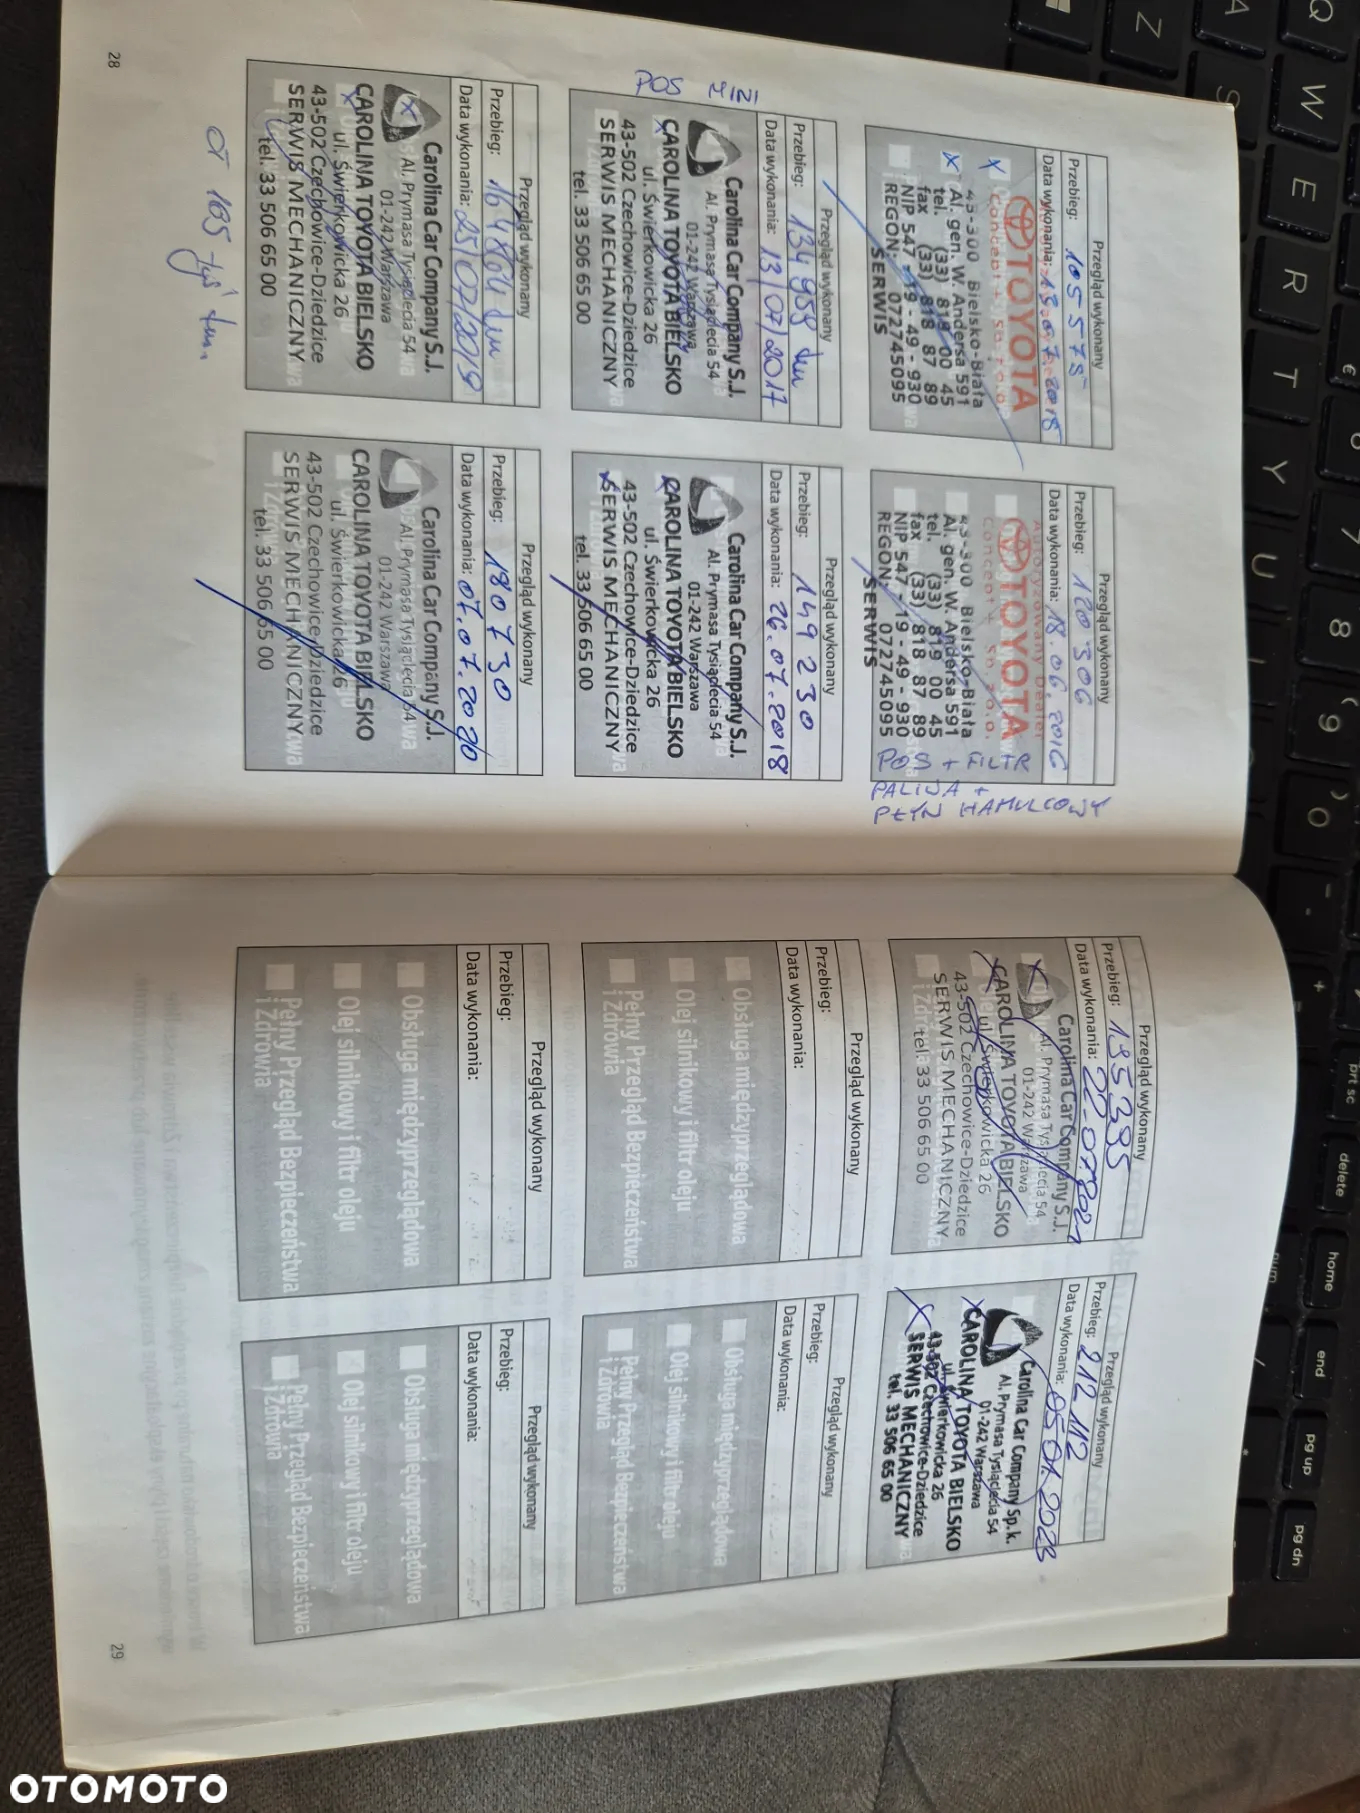 Przegląd wykonany
Przebieg: 105 578
Data wykonania: 13.07.2015
TOYOTA
43-300 Bielsko-Biała
Al. gen. W. Andersa 591
tel. (33) 819 00 45
fax (33) 818 87 89
NIP 547-19-49-930
REGON: 072745095
SERWIS
Przegląd wykonany
Przebieg: 120 306
Data wykonania: 18.06.2016
Autoryzowany Dealer
TOYOTA
Concept Sp. z o.o.
43-300 Bielsko-Biała
Al. gen. W. Andersa 591
tel. (33) 819 00 45
fax (33) 818 87 89
NIP 547-19-49-930
REGON: 072745095
SERWIS
POŚ + FILTR
PALIWA +
PŁYN HAMULCOWY
Przegląd wykonany
Przebieg: 134 959 km
Data wykonania: 13/07/2017
Carolina Car Company S.J.
Al. Prymasa Tysiąclecia 54
01-242 Warszawa
CAROLINA TOYOTA BIELSKO
ul. Świerkowicka 26
43-502 Czechowice-Dziedzice
SERWIS MECHANICZNY
tel. 33 506 65 00
Przegląd wykonany
Przebieg: 149 230
Data wykonania: 26.07.2018
Carolina Car Company S.J.
Al. Prymasa Tysiąclecia 54
01-242 Warszawa
CAROLINA TOYOTA BIELSKO
ul. Świerkowicka 26
43-502 Czechowice-Dziedzice
SERWIS MECHANICZNY
tel. 33 506 65 00
Przegląd wykonany
Przebieg: 164864 km
Data wykonania: 25/07/2019
Carolina Car Company S.J.
Al. Prymasa Tysiąclecia 54
01-242 Warszawa
CAROLINA TOYOTA BIELSKO
ul. Świerkowicka 26
43-502 Czechowice-Dziedzice
SERWIS MECHANICZNY
tel. 33 506 65 00
Przegląd wykonany
Przebieg: 180730
Data wykonania: 07.07.2020
Carolina Car Company S.J.
Al. Prymasa Tysiąclecia 54
01-242 Warszawa
CAROLINA TOYOTA BIELSKO
ul. Świerkowicka 26
43-502 Czechowice-Dziedzice
SERWIS MECHANICZNY
tel. 33 506 65 00
28
Przegląd wykonany
Przebieg: 195395
Data wykonania: 22.07.2021
Carolina Car Company S.J.
Al. Prymasa Tysiąclecia 54
01-242 Warszawa
CAROLINA TOYOTA BIELSKO
ul. Świerkowicka 26
43-502 Czechowice-Dziedzice
SERWIS MECHANICZNY
tel. 33 506 65 00
Przegląd wykonany
Przebieg: 212 112
Data wykonania: 05.01.2023
Carolina Car Company Sp.k.
Al. Prymasa Tysiąclecia 54
01-242 Warszawa
CAROLINA TOYOTA BIELSKO
ul. Świerkowicka 26
43-502 Czechowice-Dziedzice
SERWIS MECHANICZNY
tel. 33 506 65 00
Przegląd wykonany
Przebieg:
Data wykonania:
Obsługa międzyprzeglądowa
Olej silnikowy i filtr oleju
Pełny Przegląd Bezpieczeństwa
i Zdrowia
Przegląd wykonany
Przebieg:
Data wykonania:
Obsługa międzyprzeglądowa
Olej silnikowy i filtr oleju
Pełny Przegląd Bezpieczeństwa
i Zdrowia
Przegląd wykonany
Przebieg:
Data wykonania:
Obsługa międzyprzeglądowa
Olej silnikowy i filtr oleju
Pełny Przegląd Bezpieczeństwa
i Zdrowia
Przegląd wykonany
Przebieg:
Data wykonania:
Obsługa międzyprzeglądowa
Olej silnikowy i filtr oleju
Pełny Przegląd Bezpieczeństwa
i Zdrowia
29
Q W E R T Y U
A S
Z
7 8 9 0
prt sc
delete
home
end
pg up
pg dn
OTOMOTO